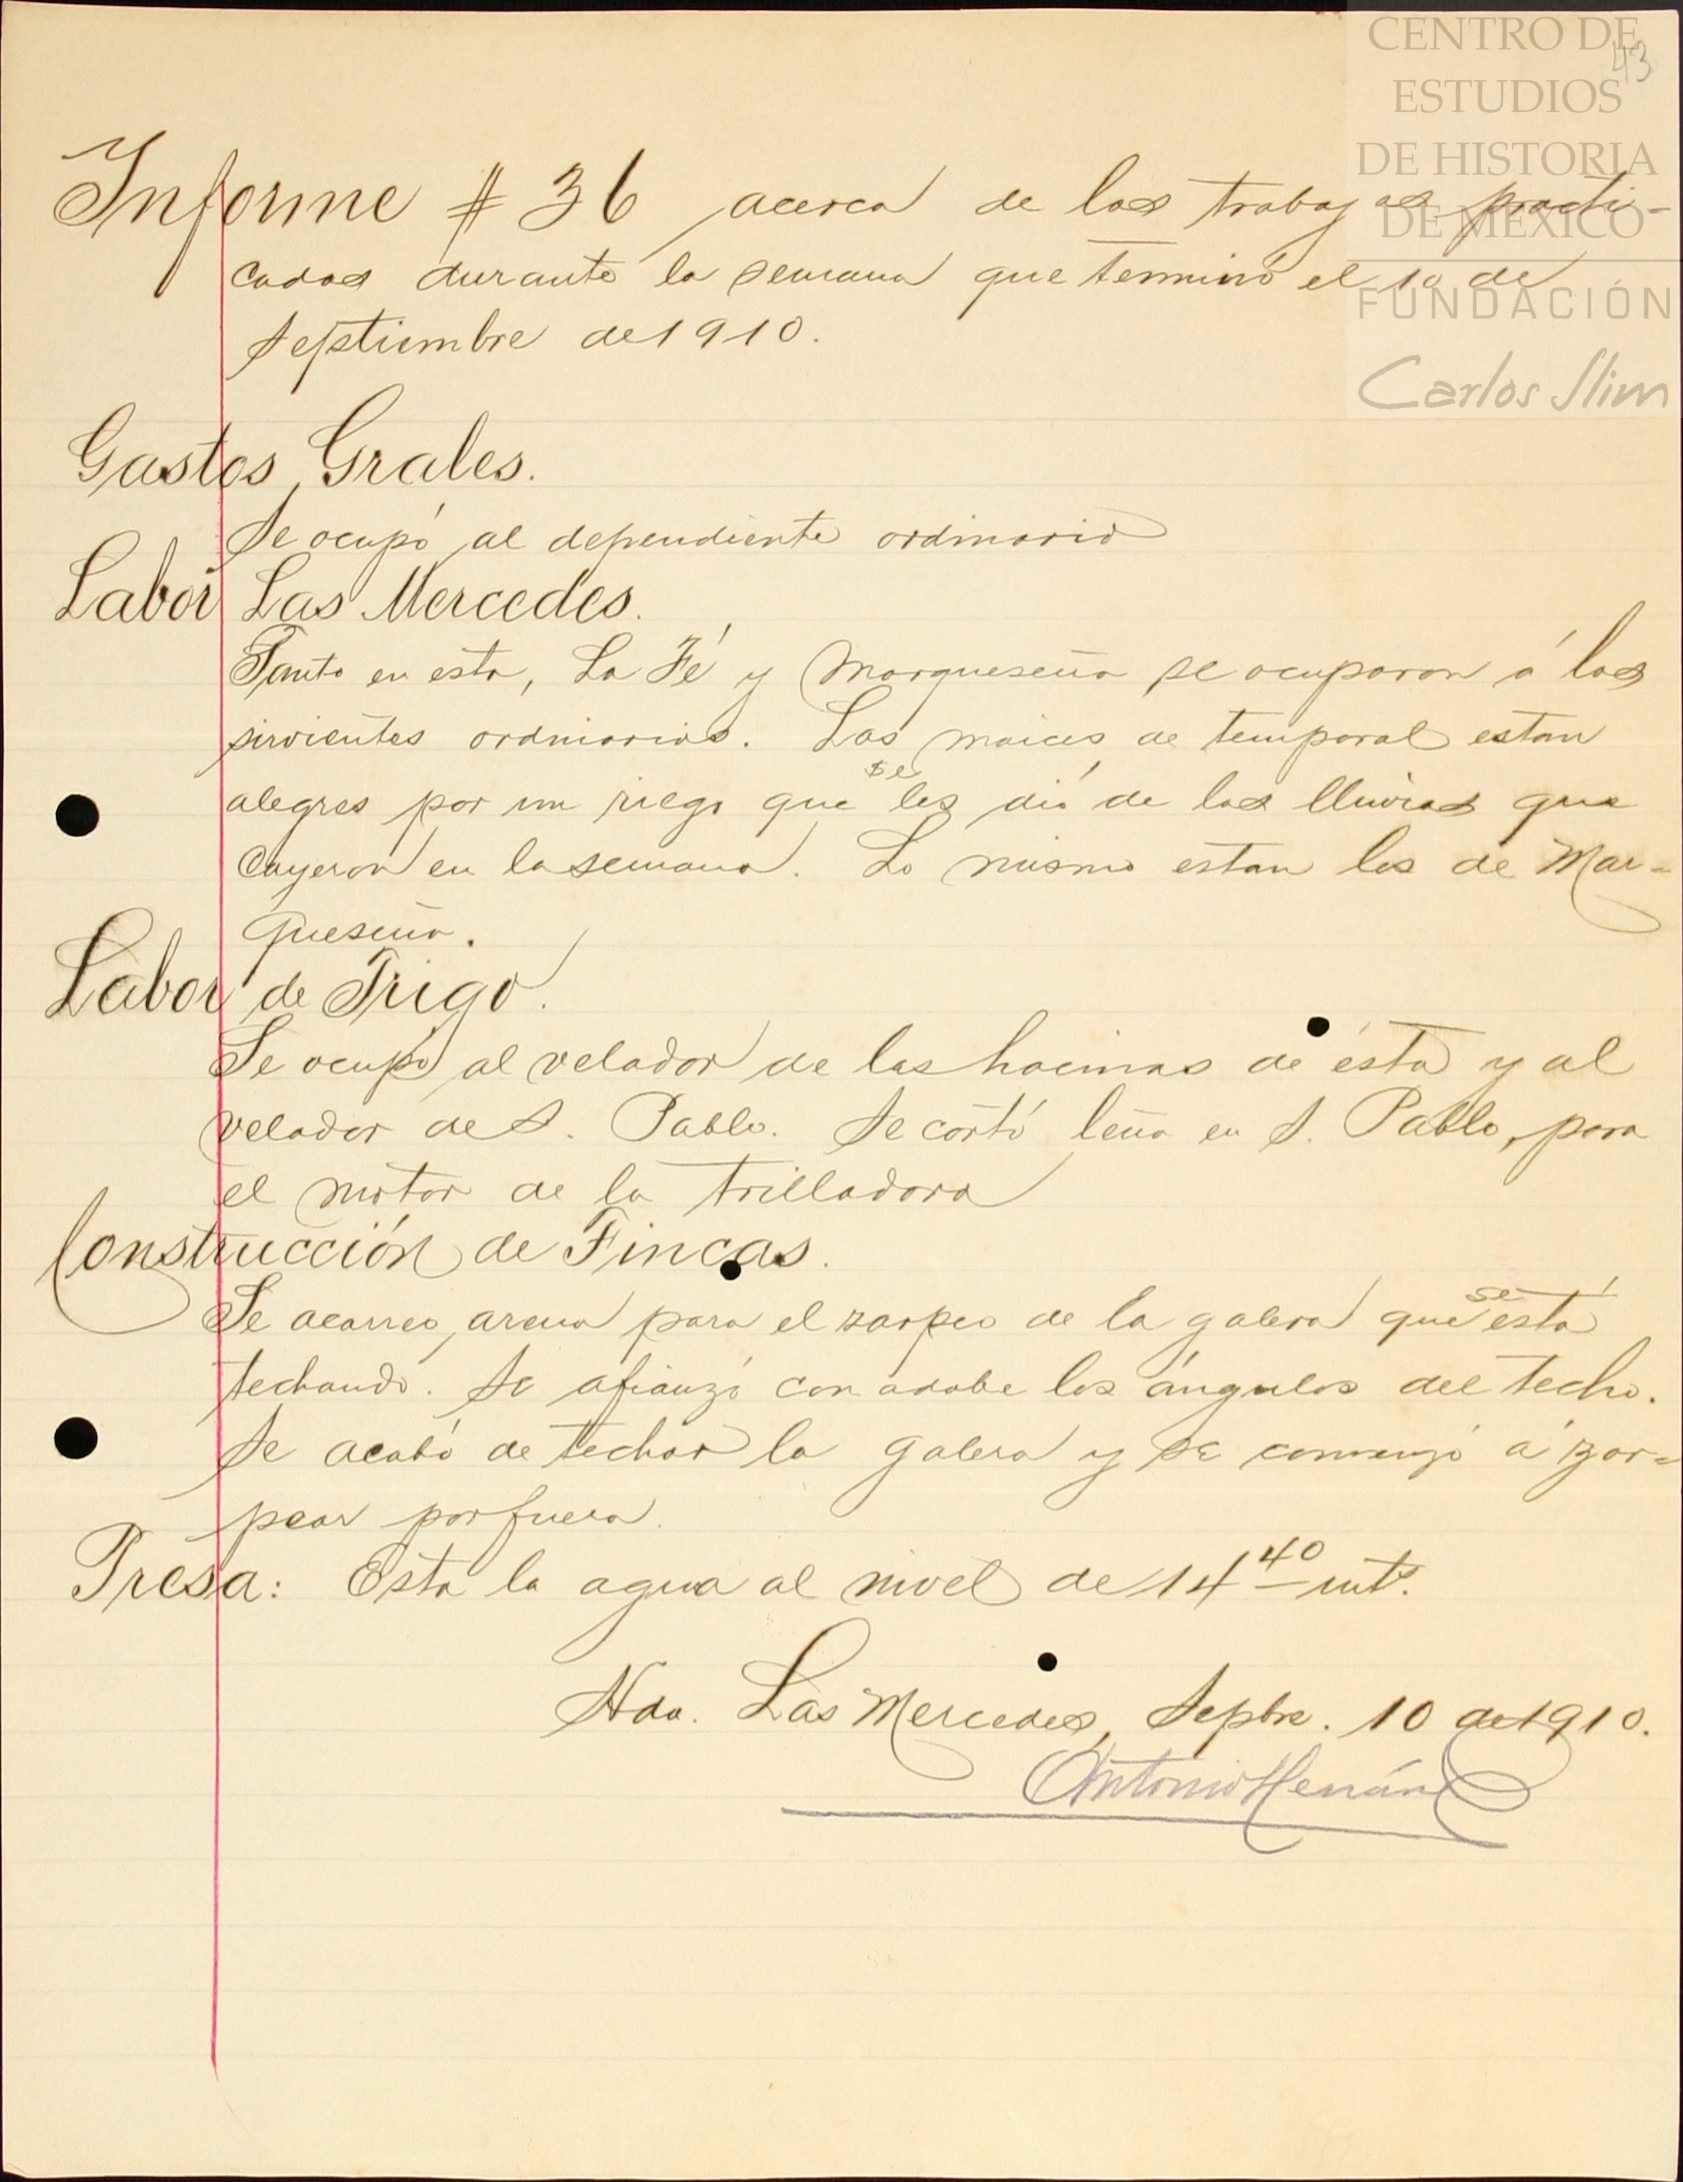 CENTRO DE
ESTUDIOS
DE HISTORIA
DE MÉXICO
FUNDACIÓN
Carlos Slim
43
Informe # 36 acerca de los trabajos practi-
cados durante la semana que terminó el 10 de
Septiembre de 1910.
Gastos Grales.
Se ocupó al dependiente ordinario
Labor Las Mercedes.
Tanto en esta, La Fé y Marqueseña se ocuparon á los
sirvientes ordinarios. Los maices de temporal estan
alegres por un riego que se les dió de las lluvias que
cayeron en la semana. Lo mismo estan los de Mar-
queseña.
Labor de Trigo.
Se ocupó al velador de las hacinas de ésta y al
velador de S. Pablo. Se cortó leña en S. Pablo, para
el motor de la trilladora
Construcción de Fincas.
Se acarreo arena para el zarpeo de la galera que se está
techando. Se afianzó con adobe los ángulos del techo.
Se acabó de techar la galera y se comenzó á zar-
pear por fuera.
Presa: Esta la agua al nivel de 14 40 mts.
Hda. Las Mercedes, Sepbre. 10 de 1910.
Antonio Hernán